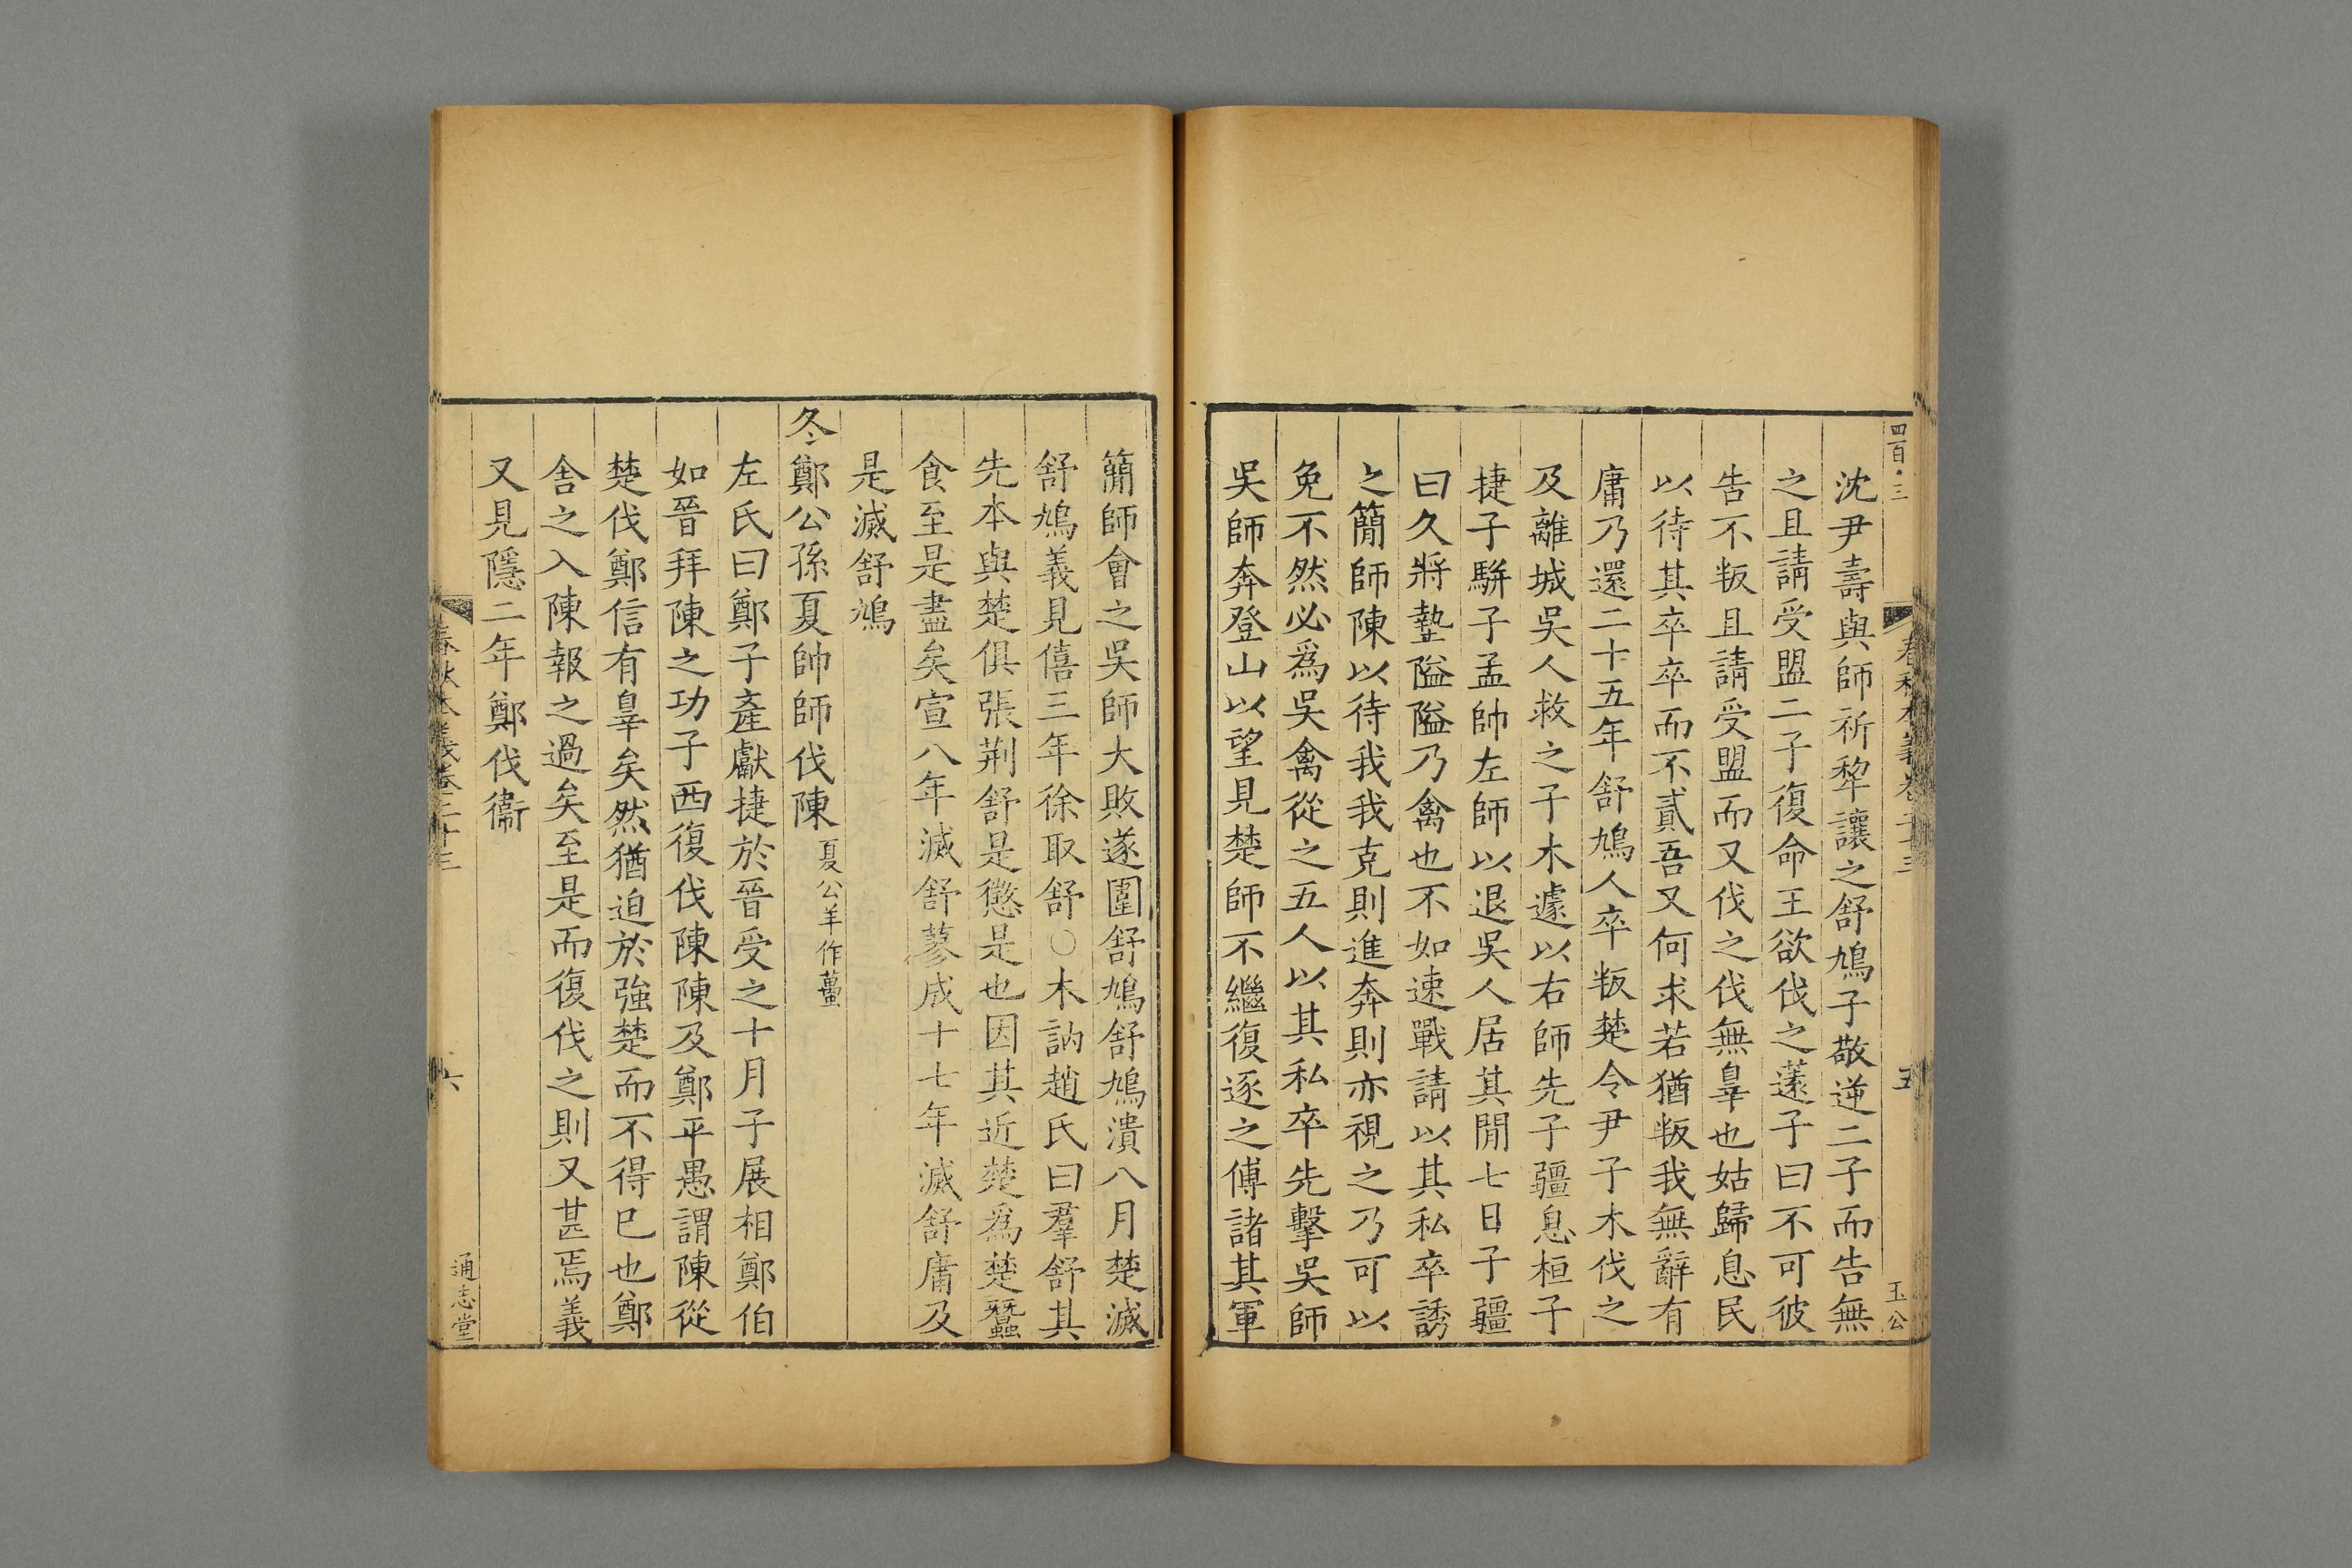 四百·三
春秋本義卷二十三
五
玉公
沈尹壽與師祈犂讓之舒鳩子敬逆二子而告無
之且請受盟二子復命王欲伐之薳子曰不可彼
告不叛且請受盟而又伐之伐無辠也姑歸息民
以待其卒卒而不貳吾又何求若猶叛我無辭有
庸乃還二十五年舒鳩人卒叛楚令尹子木伐之
及離城吳人救之子木遽以右師先子疆息桓子
捷子駢子孟帥左師以退吳人居其閒七日子疆
曰久將墊隘隘乃禽也不如速戰請以其私卒誘
之簡師陳以待我我克則進奔則亦視之乃可以
免不然必爲吳禽從之五人以其私卒先擊吳師
吳師奔登山以望見楚師不繼復逐之傅諸其軍
簡師會之吳師大敗遂圍舒鳩舒鳩潰八月楚滅
舒鳩義見僖三年徐取舒○木訥趙氏曰羣舒其
先本與楚俱張荆舒是懲是也因其近楚爲楚蠶
食至是盡矣宣八年滅舒蓼成十七年滅舒庸及
是滅舒鳩
冬鄭公孫夏帥師伐陳夏公羊作蠆
左氏曰鄭子產獻捷於晉受之十月子展相鄭伯
如晉拜陳之功子西復伐陳陳及鄭平愚謂陳從
楚伐鄭信有辠矣然猶迫於強楚而不得已也鄭
舍之入陳報之過矣至是而復伐之則又甚焉義
又見隱二年鄭伐衞
春秋本義卷二十三
六
通志堂